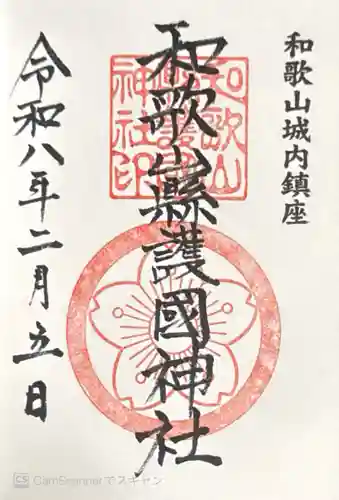 和歌山城内鎮座
和歌山縣護國神社
令和八年二月五日
CS CamScannerでスキャン